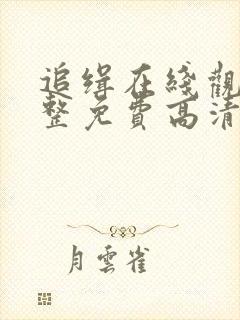 追緝在綫觀
整免費高清
月雲雀